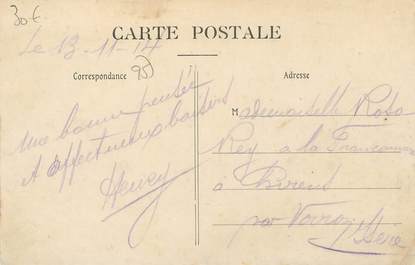 30€
Le 13-11-14
CARTE POSTALE
Correspondance
95)
Adresse
Une bonne pensée
et affectueux baisers
Henry
Mademoiselle Rosa
Rey a la
à Chirens
par Voiron
Isère